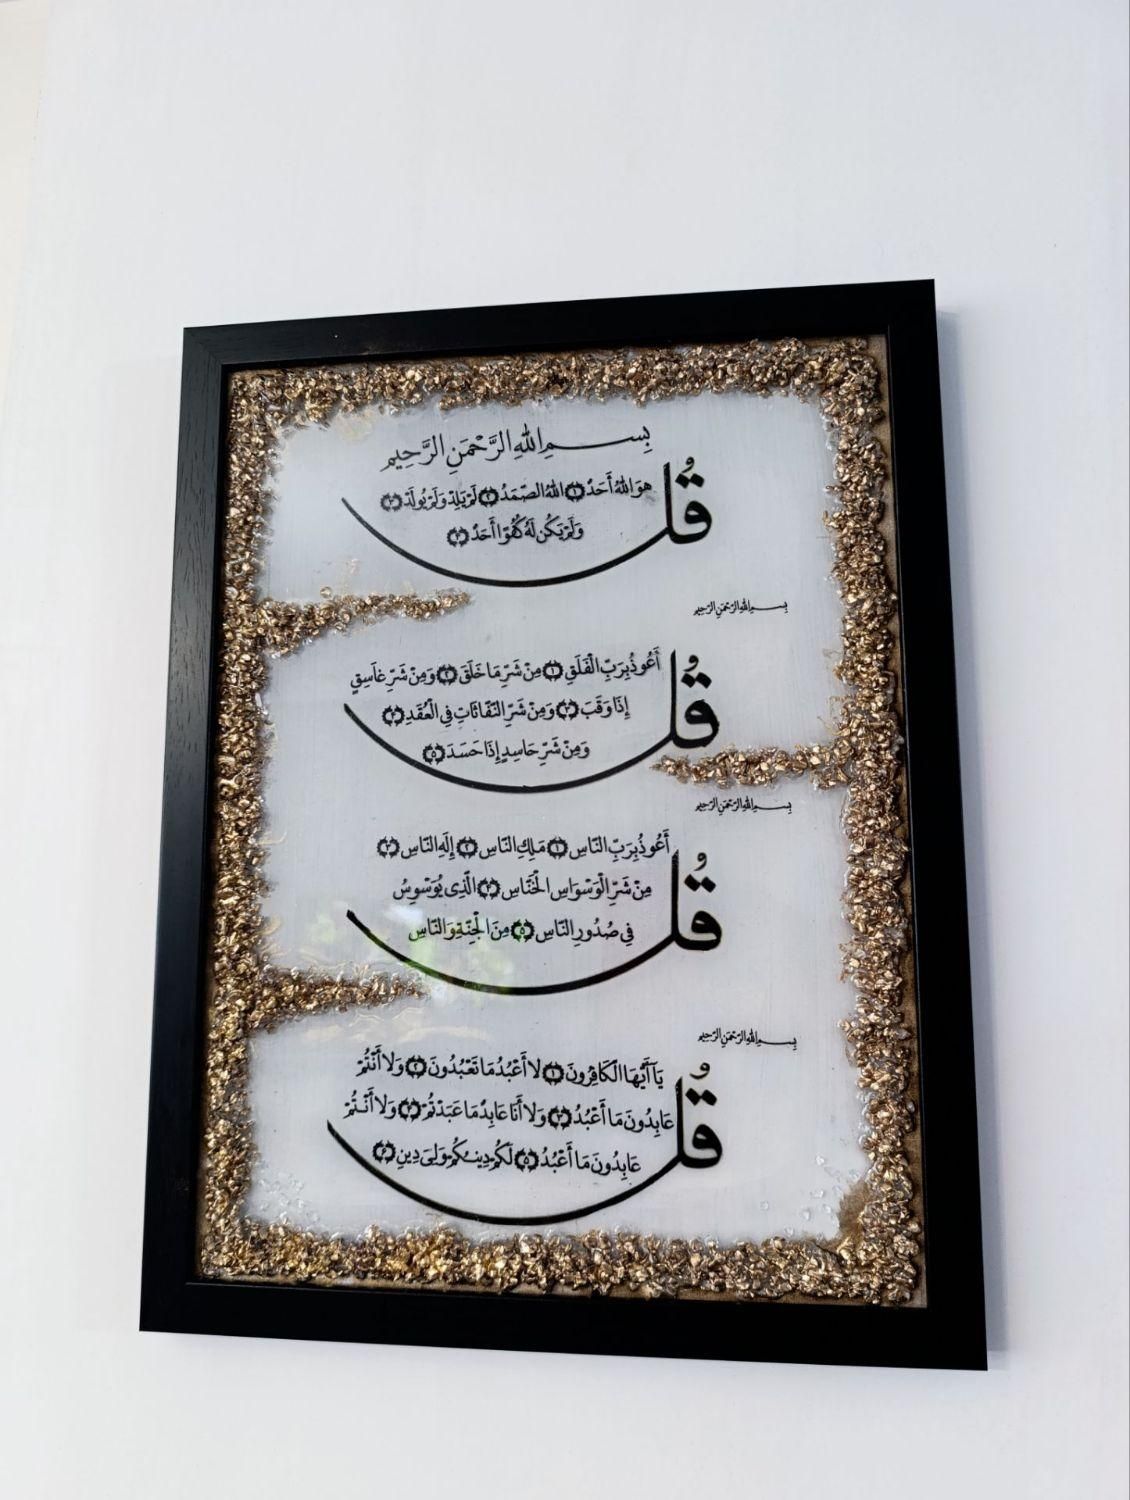 بِسْمِ اللهِ الرَّحْمَنِ الرَّحِيمِ
قُل هُوَ اللهُ أَحَدٌ ١ اللهُ الصَّمَدُ ٢ لَمْ يَلِدْ وَلَمْ يُولَدْ ٣
وَلَمْ يَكُن لَهُ كُفُوًا أَحَدٌ ٤
بِسْمِ اللهِ الرَّحْمَنِ الرَّحِيمِ
قُل أَعُوذُ بِرَبِّ الْفَلَقِ ١ مِنْ شَرِّ مَا خَلَقَ ٢ وَمِنْ شَرِّ غَاسِقٍ
إِذَا وَقَبَ ٣ وَمِنْ شَرِّ النَّفَّاثَاتِ فِي الْعُقَدِ ٤
وَمِنْ شَرِّ حَاسِدٍ إِذَا حَسَدَ ٥
بِسْمِ اللهِ الرَّحْمَنِ الرَّحِيمِ
قُل أَعُوذُ بِرَبِّ النَّاسِ ١ مَلِكِ النَّاسِ ٢ إِلَهِ النَّاسِ ٣
مِنْ شَرِّ الْوَسْوَاسِ الْخَنَّاسِ ٤ الَّذِي يُوَسْوِسُ
فِي صُدُورِ النَّاسِ ٥ مِنَ الْجِنَّةِ وَالنَّاسِ
بِسْمِ اللهِ الرَّحْمَنِ الرَّحِيمِ
قُل يَا أَيُّهَا الْكَافِرُونَ ١ لَا أَعْبُدُ مَا تَعْبُدُونَ ٢ وَلَا أَنْتُمْ
عَابِدُونَ مَا أَعْبُدُ ٣ وَلَا أَنَا عَابِدٌ مَا عَبَدْتُمْ ٤ وَلَا أَنْتُمْ
عَابِدُونَ مَا أَعْبُدُ ٥ لَكُمْ دِينُكُمْ وَلِيَ دِينِ ٦